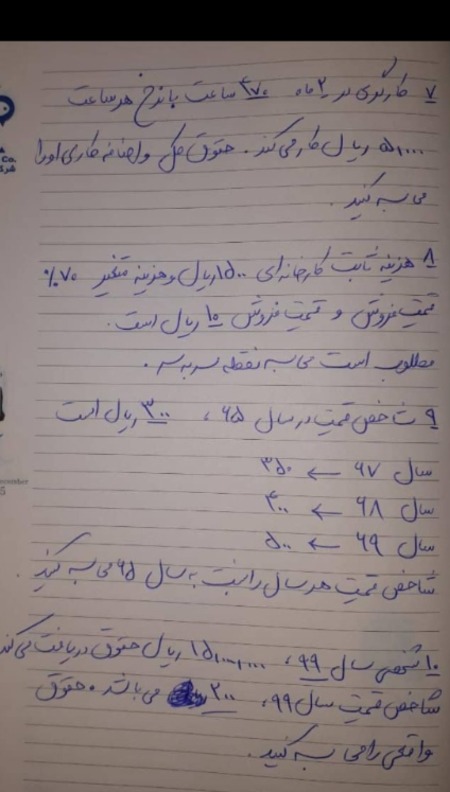 ۷ کارگری در ۲ ماه ۴۷۰ ساعت با نرخ هر ساعت
۵۱,۰۰۰ ریال کار می کند. حقوق کل و اضافه کاری او را
محاسبه کنید.
۸ هزینه ثابت کارخانه ای ۱۵۰۰ ریال و هزینه متغیر ۷۰%
قیمت فروش و قیمت فروش ۱۰ ریال است.
مطلوب است محاسبه نقطه سر به سر.
۹ شاخص قیمت در سال ۶۵، ۳۰۰ ریال است
سال ۶۷ ← ۳۵۰
سال ۶۸ ← ۴۰۰
سال ۶۹ ← ۵۰۰
شاخص قیمت هر سال را نسبت به سال ۶۵ محاسبه کنید.
۱۰ شخصی سال ۹۹، ۱۵,۰۰۰,۰۰۰ ریال حقوق دریافت می کند
شاخص قیمت سال ۹۹، ۲۰۰ می باشد. حقوق
واقعی را محاسبه کنید.